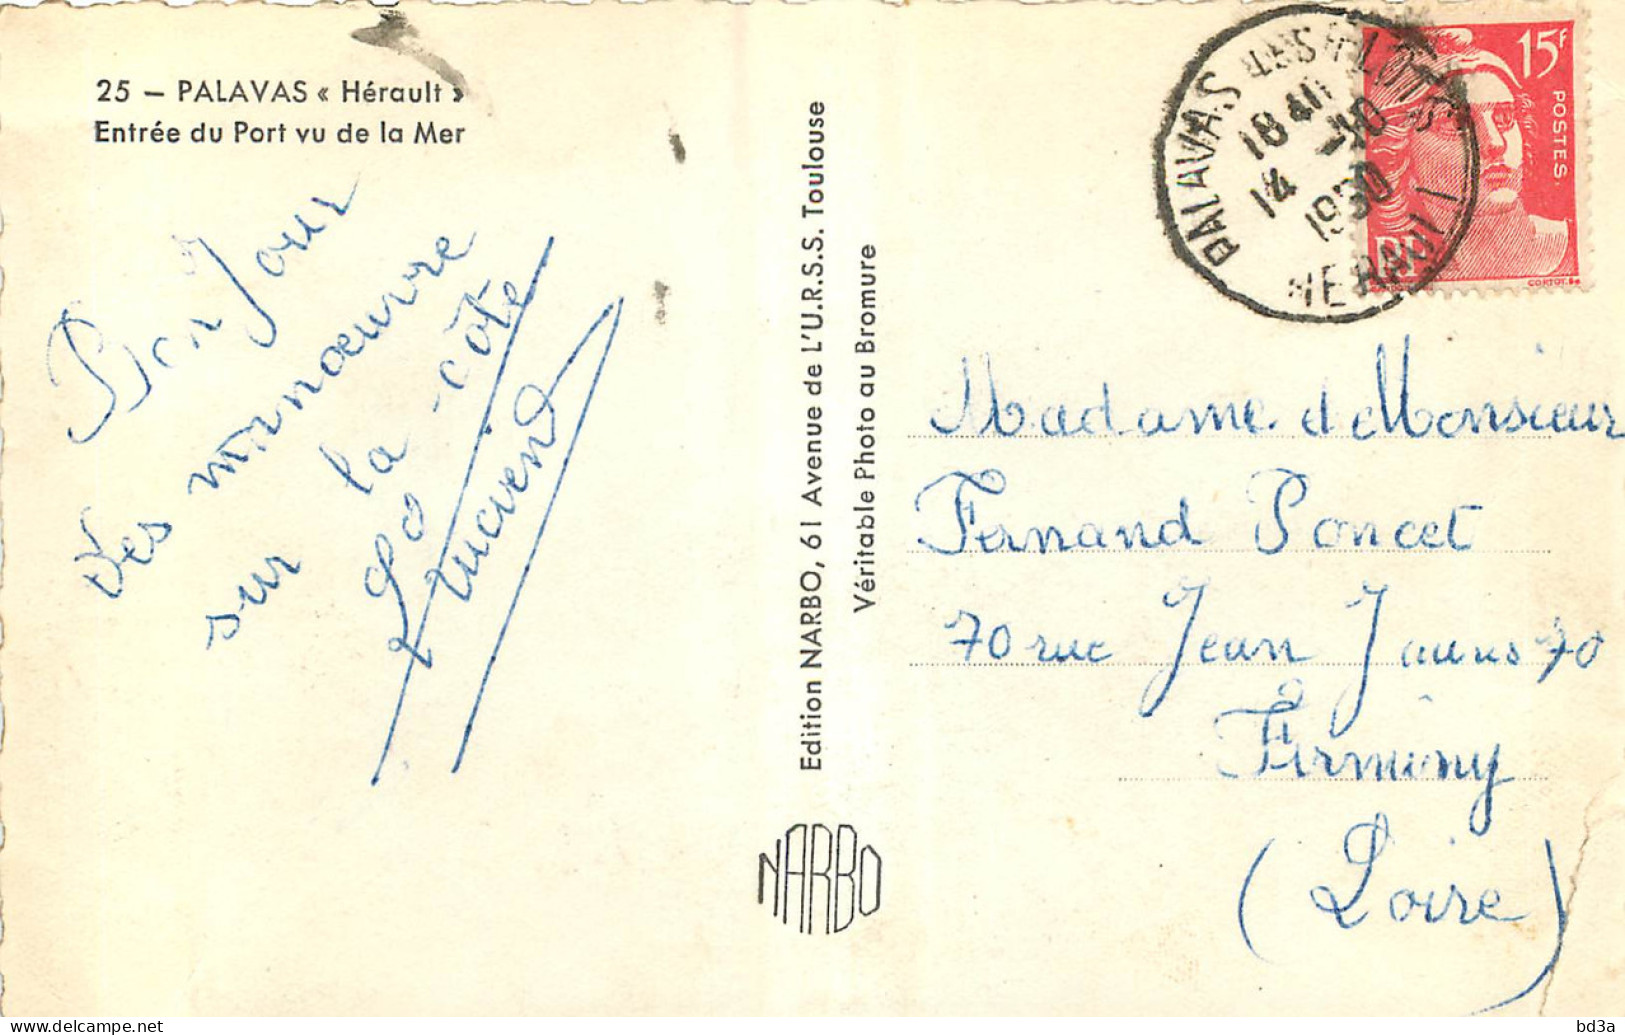 25 — PALAVAS « Hérault »
Entrée du Port vu de la Mer
Bonjour
des manoeuvre
sur la côte
Lucien
Edition NARBO, 61 Avenue de L'U.R.S.S. Toulouse
Véritable Photo au Bromure
NARBO
PALAVAS LES FLOTS
18 H
14
1950
HERAULT
15F
POSTES.
RF
CORTOT.
Madame et Monsieur
Fernand Poncet
70 rue Jean Jaures 70
Firminy
(Loire)
bd3a